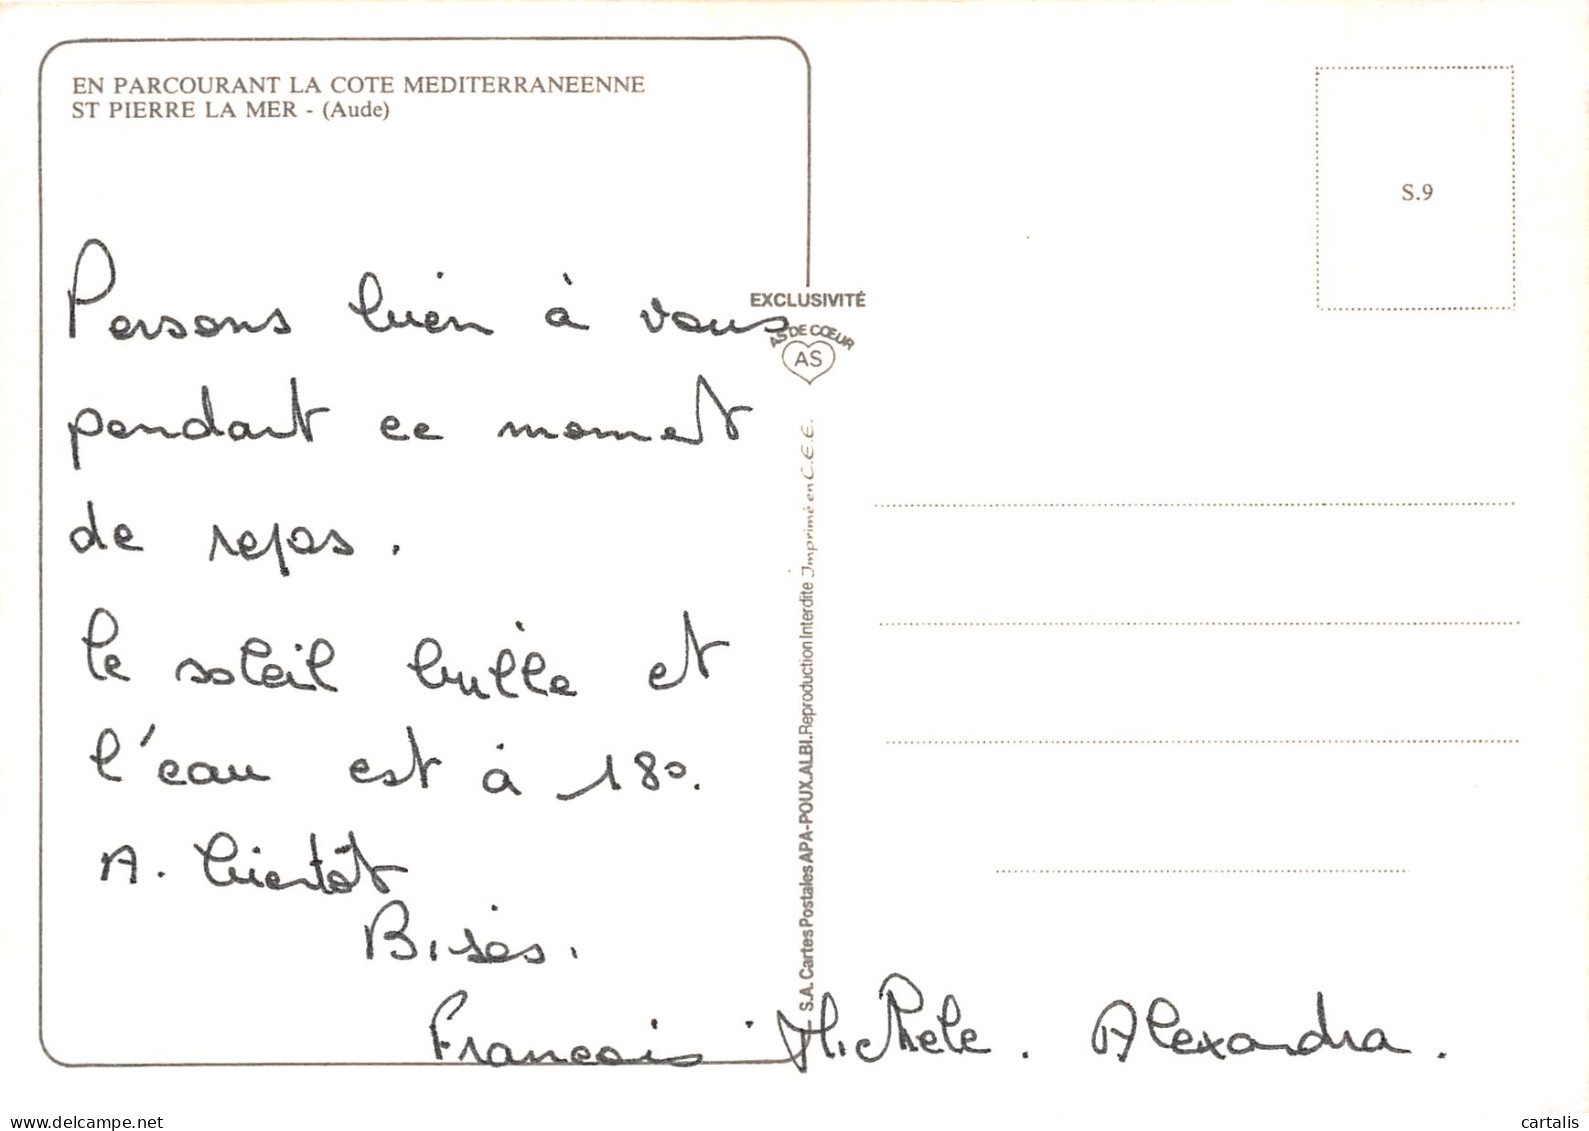 EN PARCOURANT LA COTE MEDITERRANEENNE
ST PIERRE LA MER - (Aude)
S.9
EXCLUSIVITÉ
AS DE CŒUR
AS
Pensons bien à vous
pendant ce moment
de repos.
le soleil brille et
l'eau est à 18°.
A. bientôt
Bises.
Francois. Michele. Alexandra.
S.A. Cartes Postales APA-POUX.ALBI.Reproduction Interdite Imprimé en C.E.E.
www.delcampe.net
cartalis